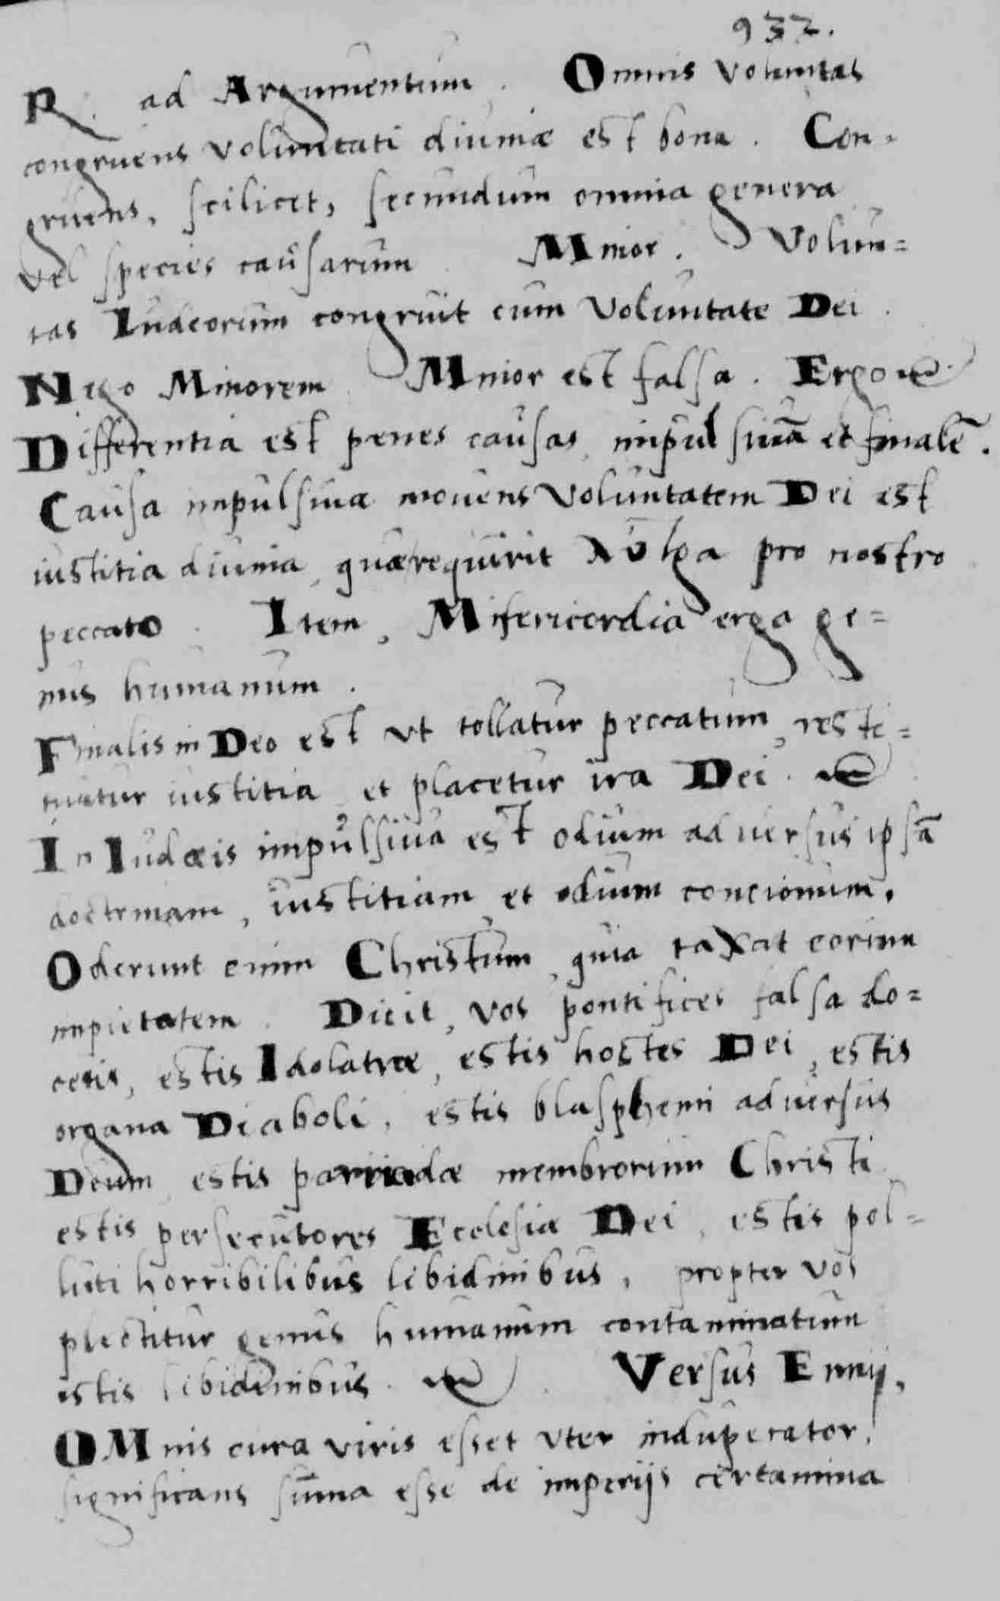 932.
R. ad Argumentum. Omnis voluntas
congruens voluntati diuinæ est bona. Con=
gruens, scilicet, secundum omnia genera
vel species causarum Minor. Volun=
tas Iudæorum congruit cum voluntate Dei.
Nego Minorem Minor est falsa. Ergo
Differentia est penes causas impulsiuā et finalē.
Causa impulsiua mouens voluntatem Dei est
iustitia diuina, quæ requirit λύτρα pro nostro
peccato. Item, Misericordia erga ge=
nus humanum.
Finalis in Deo est vt tollatur peccatum, resti=
tuatur iustitia et placetur ira Dei.
In Iudæis impulsiua est odium aduersus ipsā
doctrinam, iustitiam et odium concionum.
Oderunt enim Christum, quia taxat eorum
impietatem. Dicit, vos pontifices falsa do=
cetis, estis Idolatræ, estis hostes Dei, estis
organa Diaboli, estis blasphemi aduersus
Deum estis parricidæ membrorum Christi
estis persecutores Ecclesiæ Dei, estis pol=
luti horribilibus libidinibus, propter vos
plectitur genus humanum contaminatum
estis libidinibus. Versus Ennij.
OMnis cura viris esset vter induperator,
significans sūma esse de imperijs certamina